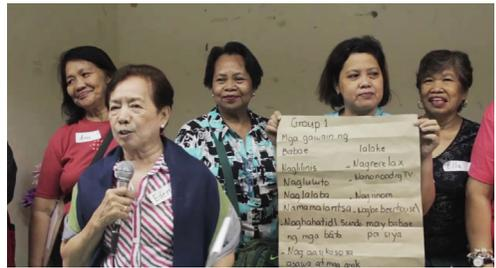 Group 1
Mga gawain ng
Babae lalake
Naglilinis - Nagrerelax
Nagluluto - Nanonood ng TV
Naglalaba - Naginom
Namamalantsa
- Naghahatid sundo may babae
ng mga bata pa siya
- Nag aasikaso sa
asawa at mga anak